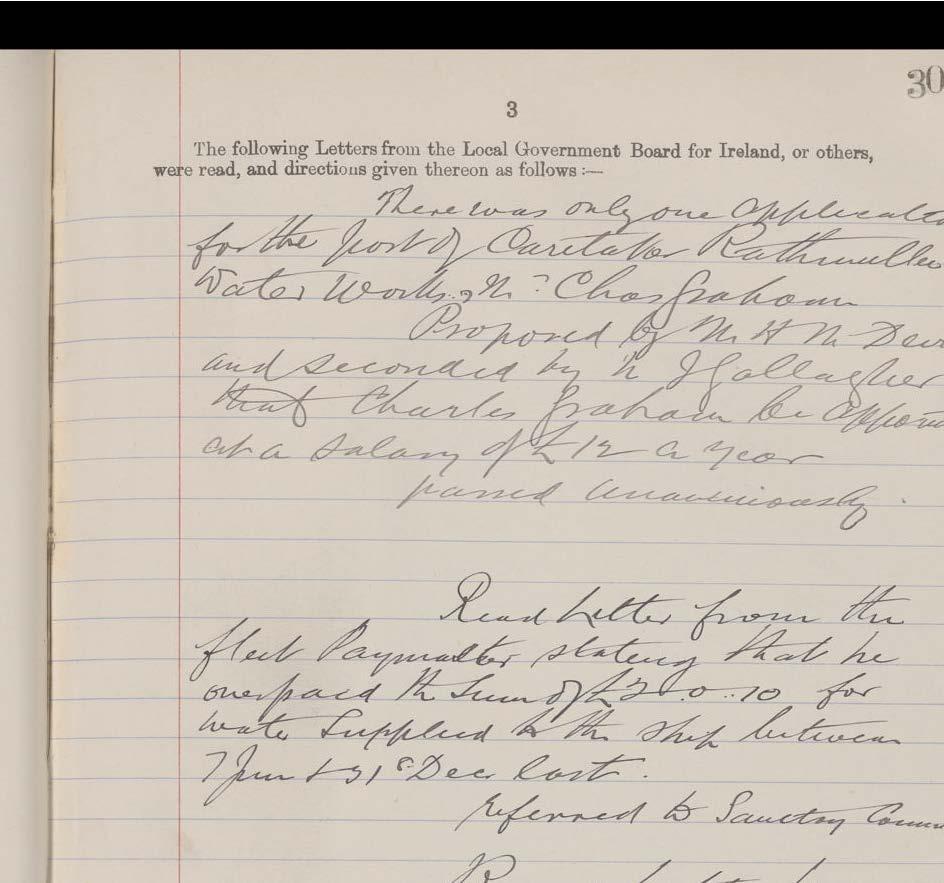 30
3
The following Letters from the Local Government Board for Ireland, or others,
were read, and directions given thereon as follows :—
There was only one applicat
for the post of Caretaker Rathmullen
Water Works, Mr Chas Graham
Proposed by Mr H Mc Dev
and seconded by Mr J Gallagher
that Charles Graham be appoin
at a salary of £12 a year
passed unanimously.
Read Letter from the
fleet Paymaster stating that he
overpaid the Sum of 0..10 for
water Supplied to the ship between
7 June & 31st Decr last.
referred to Sanitry Comm